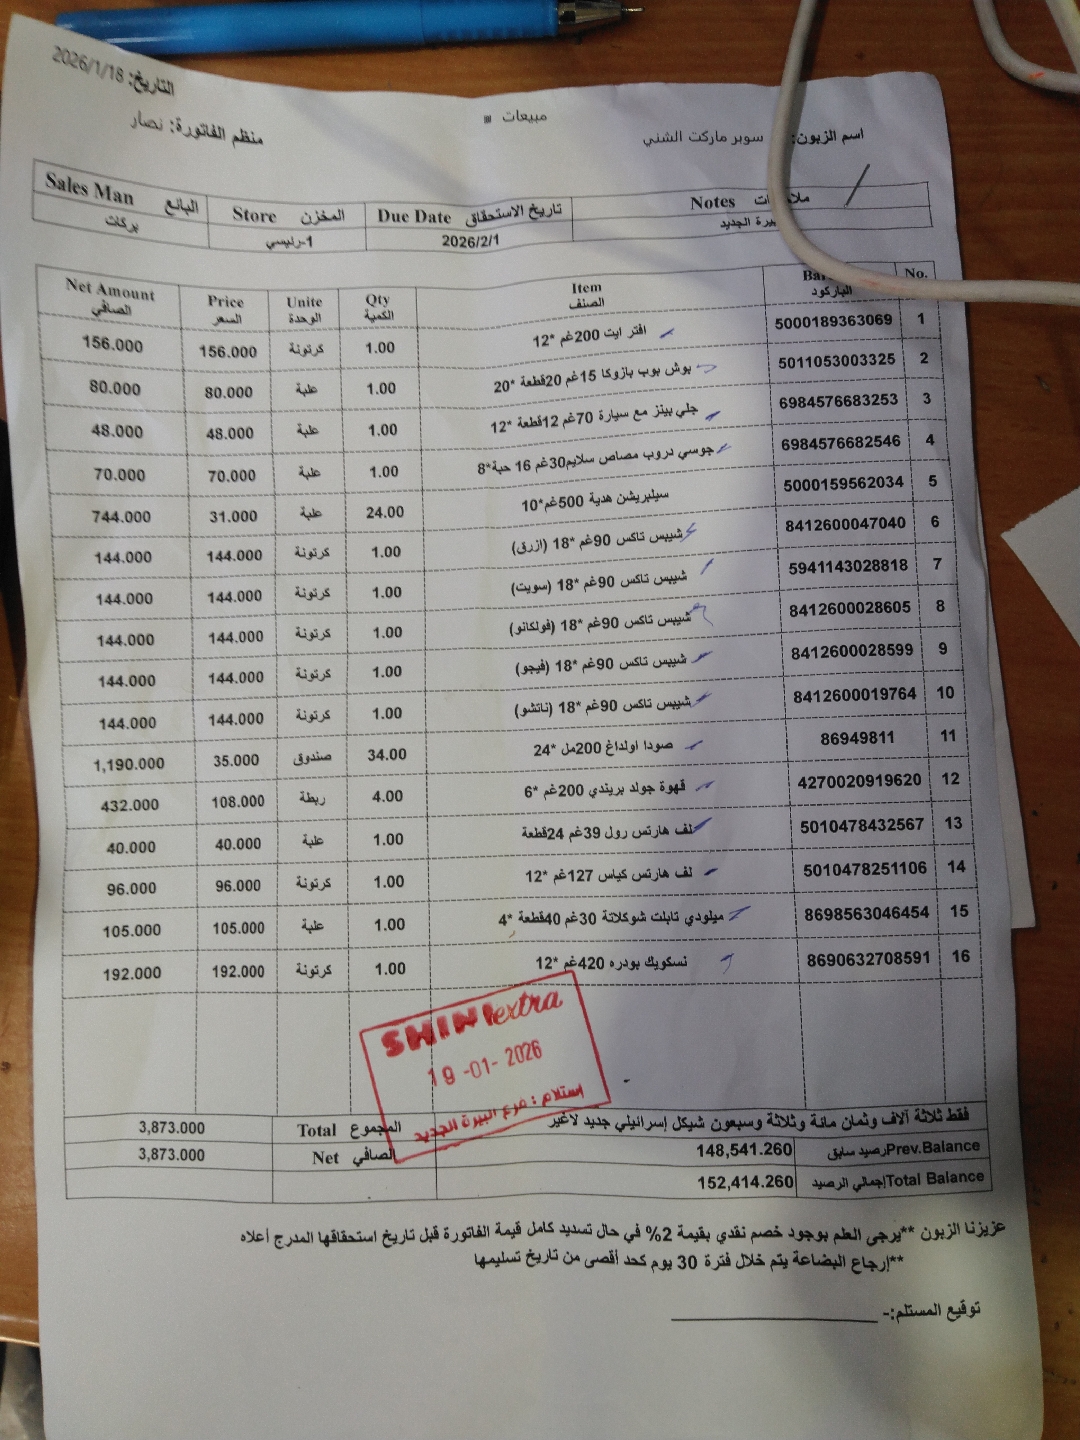 التاريخ: 2026/1/18
مبيعات
منظم الفاتورة: نصار
اسم الزبون: سوبر ماركت الشني
Notes
تاريخ الاستحقاق Due Date
المخزن Store
البائع Sales Man
البيرة الجديد
2026/2/1
1-رئيسي
بركات
No. الباركود Item الصنف Qty الكمية Unite الوحدة Price السعر Net Amount الصافي
1 5000189363069 افتر ايت 200غم *12 1.00 كرتونة 156.000 156.000
2 5011053003325 بوش بوب بازوكا 15غم 20قطعة *20 1.00 علبة 80.000 80.000
3 6984576683253 جلي بينز مع سيارة 70غم 12قطعة *12 1.00 علبة 48.000 48.000
4 6984576682546 جوسي دروب مصاص سلايم30غم 16 حبة*8 1.00 علبة 70.000 70.000
5 5000159562034 سيلبريشن هدية 500غم*10 24.00 علبة 31.000 744.000
6 8412600047040 شيبس تاكس 90غم *18 (ازرق) 1.00 كرتونة 144.000 144.000
7 5941143028818 شيبس تاكس 90غم *18 (سويت) 1.00 كرتونة 144.000 144.000
8 8412600028605 شيبس تاكس 90غم *18 (فولكانو) 1.00 كرتونة 144.000 144.000
9 8412600028599 شيبس تاكس 90غم *18 (فيجو) 1.00 كرتونة 144.000 144.000
10 8412600019764 شيبس تاكس 90غم *18 (ناتشو) 1.00 كرتونة 144.000 144.000
11 86949811 صودا اولداغ 200مل *24 34.00 صندوق 35.000 1,190.000
12 4270020919620 قهوة جولد بريندي 200غم *6 4.00 ربطة 108.000 432.000
13 5010478432567 لف هارتس رول 39غم 24قطعة 1.00 علبة 40.000 40.000
14 5010478251106 لف هارتس كياس 127غم *12 1.00 كرتونة 96.000 96.000
15 8698563046454 ميلودي تابلت شوكلاتة 30غم 40قطعة *4 1.00 علبة 105.000 105.000
16 8690632708591 نسكويك بودره 420غم *12 1.00 كرتونة 192.000 192.000
SHINI extra
19 -01- 2026
استلام : فرع البيرة الجديد
فقط ثلاثة آلاف وثمان مائة وثلاثة وسبعون شيكل إسرائيلي جديد لاغير
المجموع Total 3,873.000
Prev.Balance رصيد سابق 148,541.260
الصافي Net 3,873.000
Total Balance إجمالي الرصيد 152,414.260
عزيزنا الزبون **يرجى العلم بوجود خصم نقدي بقيمة 2% في حال تسديد كامل قيمة الفاتورة قبل تاريخ استحقاقها المدرج أعلاه
**إرجاع البضاعة يتم خلال فترة 30 يوم كحد أقصى من تاريخ تسليمها
توقيع المستلم:-